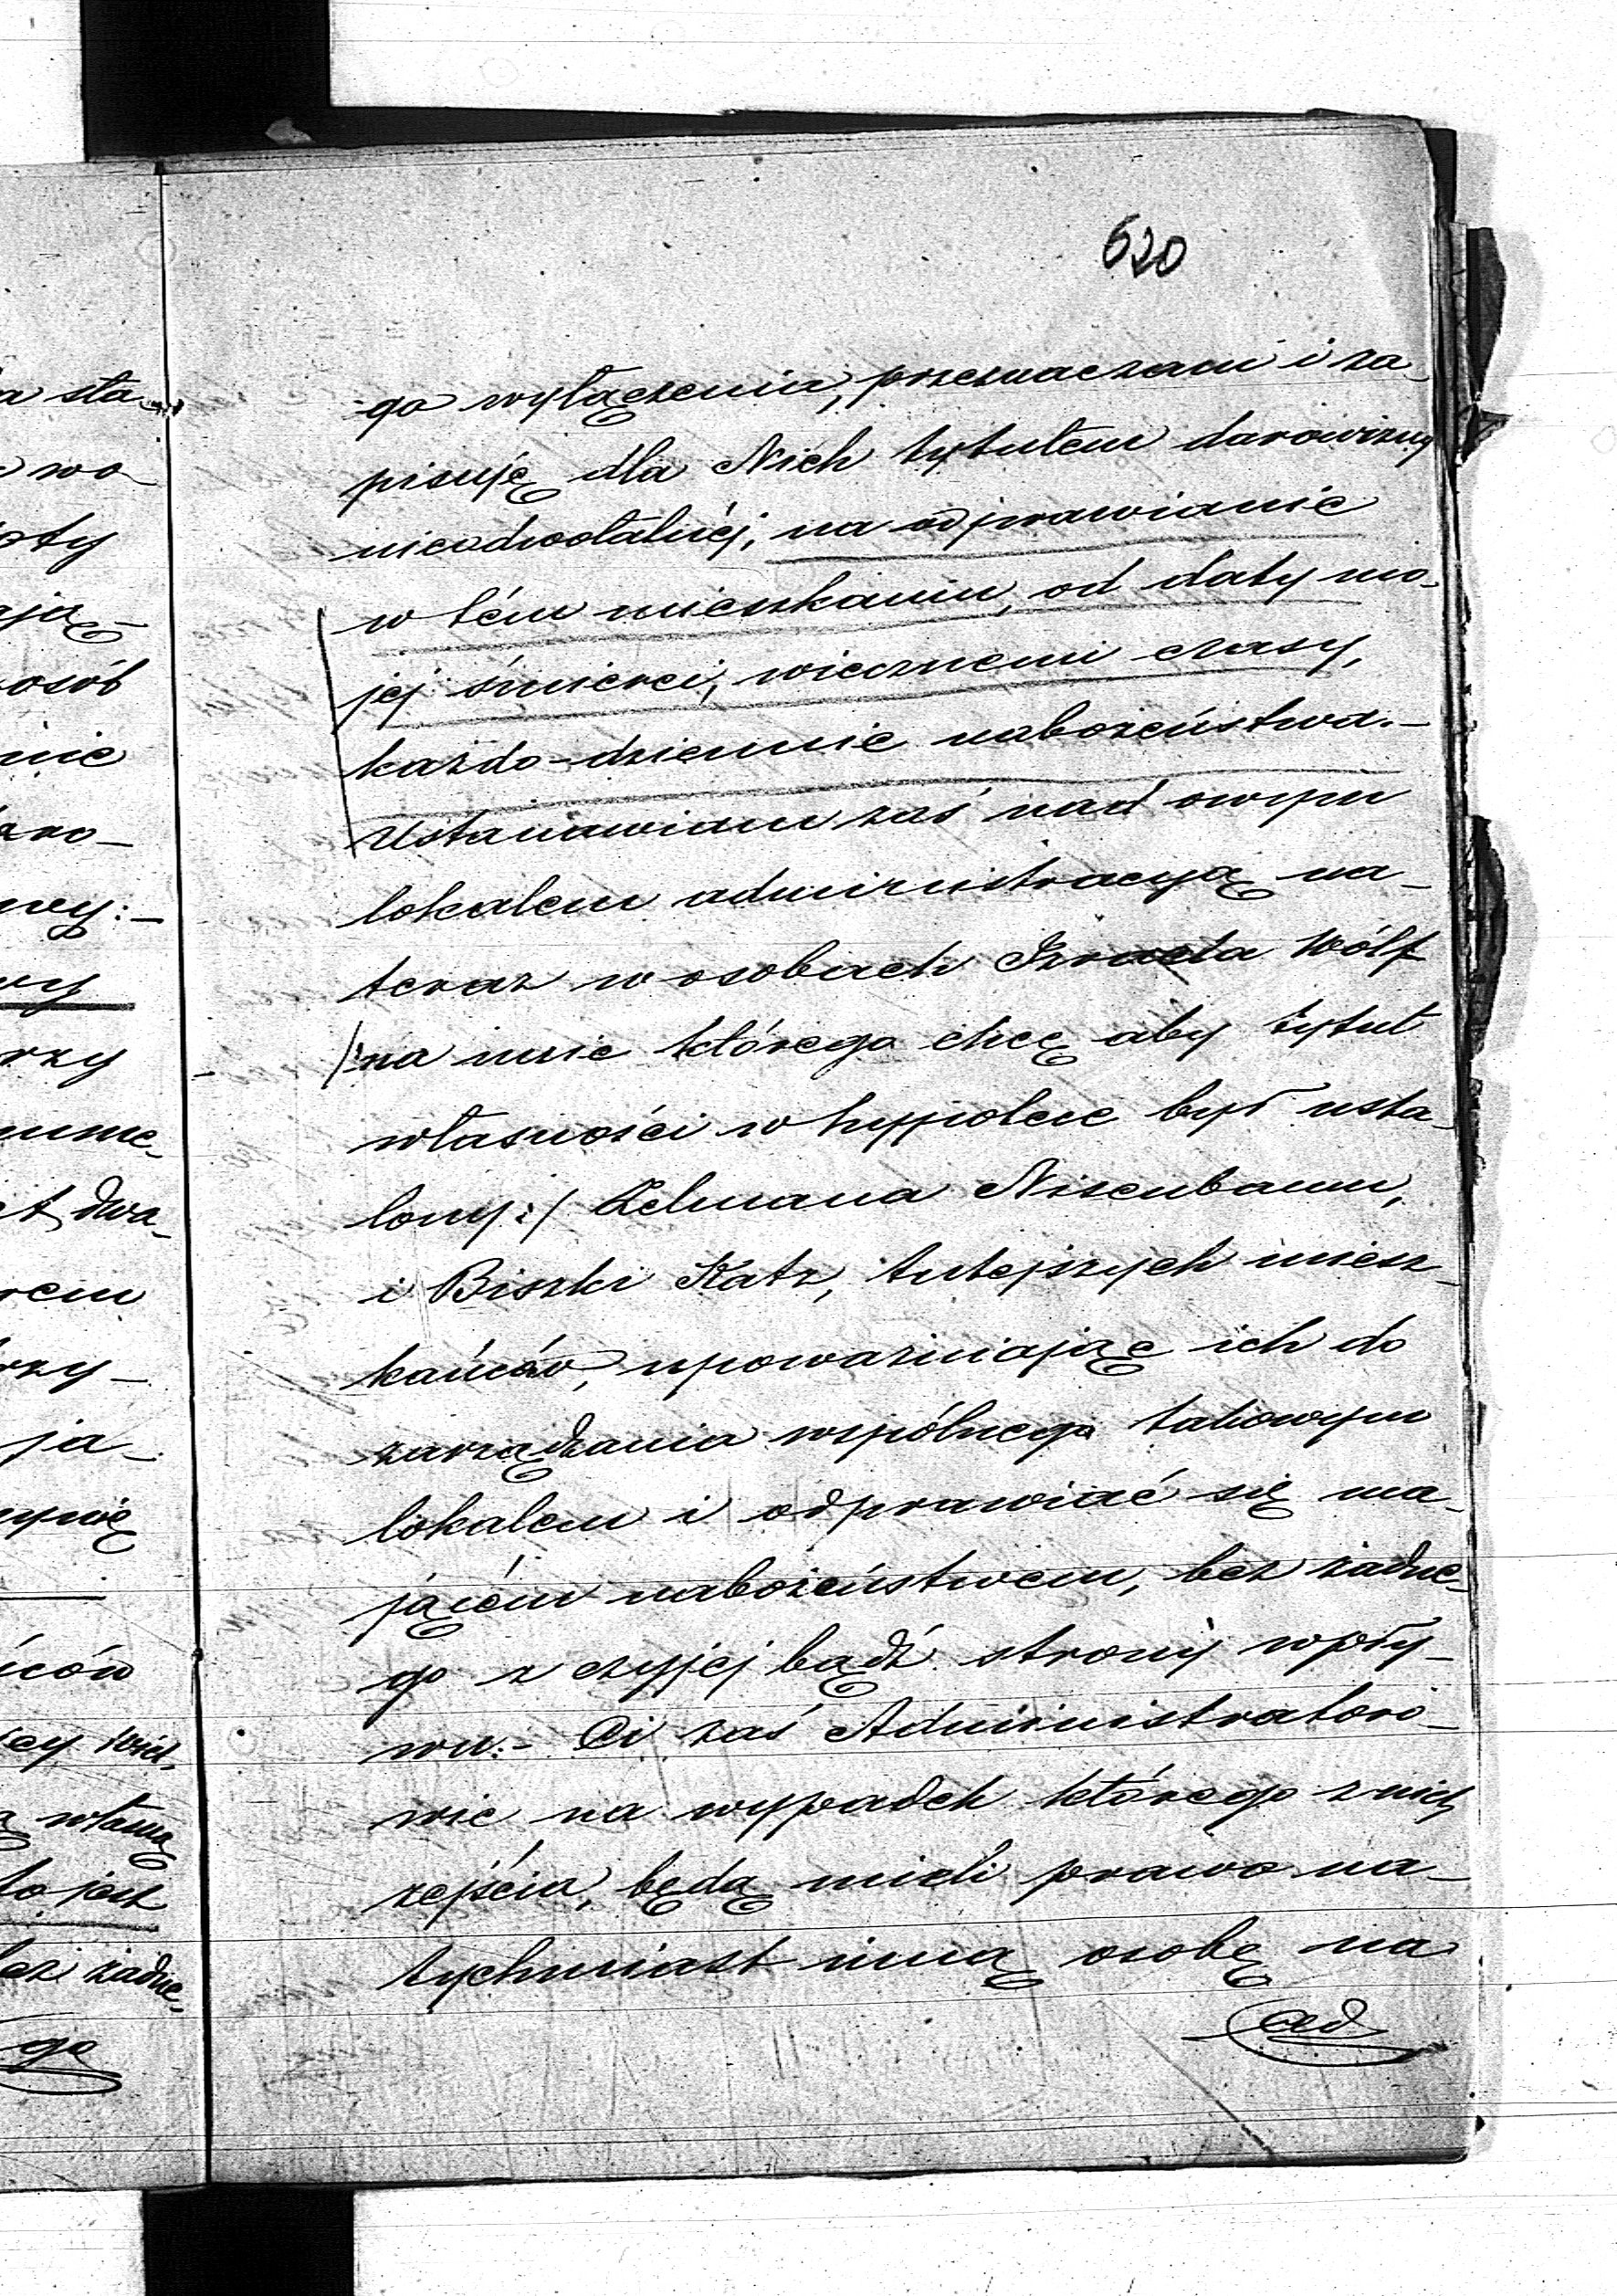 620
go wyłączenia, przeznaczam i za-
pisuję dla Nich tytułem darowizny
nieodwołalnéj, na odprawianie
w tém mieszkaniu, od daty mo-
jej śmierci, wiecznemi czasy,
każdo-dziennie nabożeństwa.-
Ustanawiam zaś nad owym
lokalem administracyą na-
teraz w osobach Izraela Wólf
/:na imie którego chcę aby tytuł
własności w hypotece był usta-
lony:/ Zelmana Nisenbaum,
i Biszki Katz, tutejszych miesz-
kańców, upoważniając ich do
zarządzania wspólnego takowym
lokalem i odprawiać się ma-
jącém nabożeństwem, bez żadne-
go z czyjej bądź strony wpły-
wu.- Ci zaś Administratoro-
wie na wypadek którego z nich
zejścia, będą mieli prawo na-
tychmiast inną osobę na
a sta-
wo-
oty
ają-
osób
nie
wy:-
rzy
nume-
t dwa-
rem
rzy-
ja-
ców
własną
to jest
bez żadne-
go